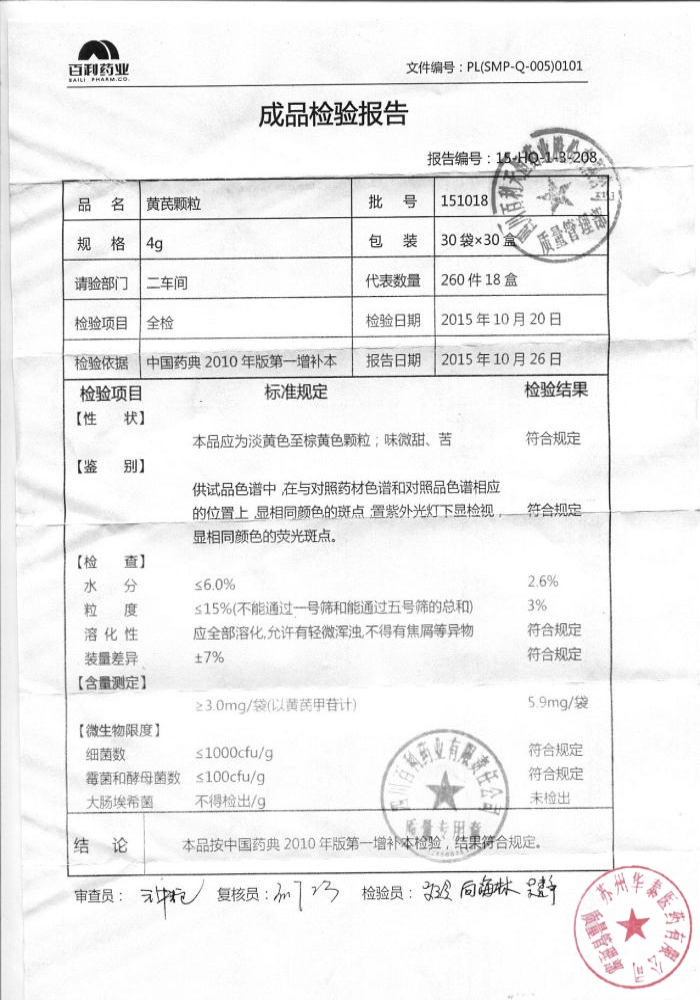 百利药业
BAILI PHARM.CO.
文件编号：PL(SMP-Q-005)0101
成品检验报告
报告编号：15-HQ-1-3-208
品 名 黄芪颗粒 批 号 151018
规 格 4g 包 装 30袋×30盒
请验部门 二车间 代表数量 260件18盒
检验项目 全检 检验日期 2015年10月20日
检验依据 中国药典2010年版第一增补本 报告日期 2015年10月26日
检验项目 标准规定 检验结果
【性 状】
本品应为淡黄色至棕黄色颗粒；味微甜、苦 符合规定
【鉴 别】
供试品色谱中,在与对照药材色谱和对照品色谱相应
的位置上,显相同颜色的斑点;置紫外光灯下显检视， 符合规定
显相同颜色的荧光斑点。
【检 查】
水 分 ≤6.0% 2.6%
粒 度 ≤15%(不能通过一号筛和能通过五号筛的总和) 3%
溶 化 性 应全部溶化,允许有轻微浑浊,不得有焦屑等异物 符合规定
装量差异 ±7% 符合规定
【含量测定】
≥3.0mg/袋(以黄芪甲苷计) 5.9mg/袋
【微生物限度】
细菌数 ≤1000cfu/g 符合规定
霉菌和酵母菌数 ≤100cfu/g 符合规定
大肠埃希菌 不得检出/g 未检出
结 论 本品按中国药典2010年版第一增补本检验，结果符合规定。
四川百利药业有限责任公司
质量专用章
质量管理部
审查员： 复核员： 检验员： 向海林
苏州华泰医药有限公司
质量管理部